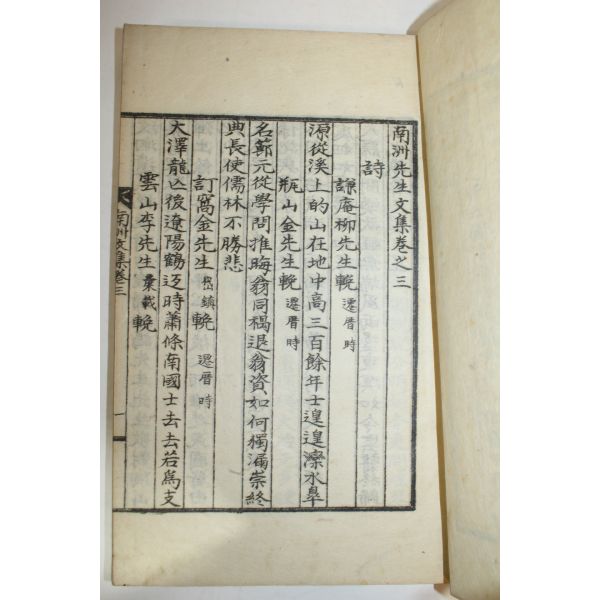 南洲先生文集卷之三
詩
謙庵柳先生輓 遷厝時
源從溪上的山在地中高三百餘年士遑遑濼水皐
瓶山金先生輓 遷厝時
名節元從學問推晦翁同稱退翁資如何獨漏崇終
典長使儒林不勝悲
訂窩金先生岱鎮輓 遷厝時
大澤龍亡後遼陽鶴返時蕭條南國士去去若爲支
雲山李先生彙載輓
南州文集卷三
一